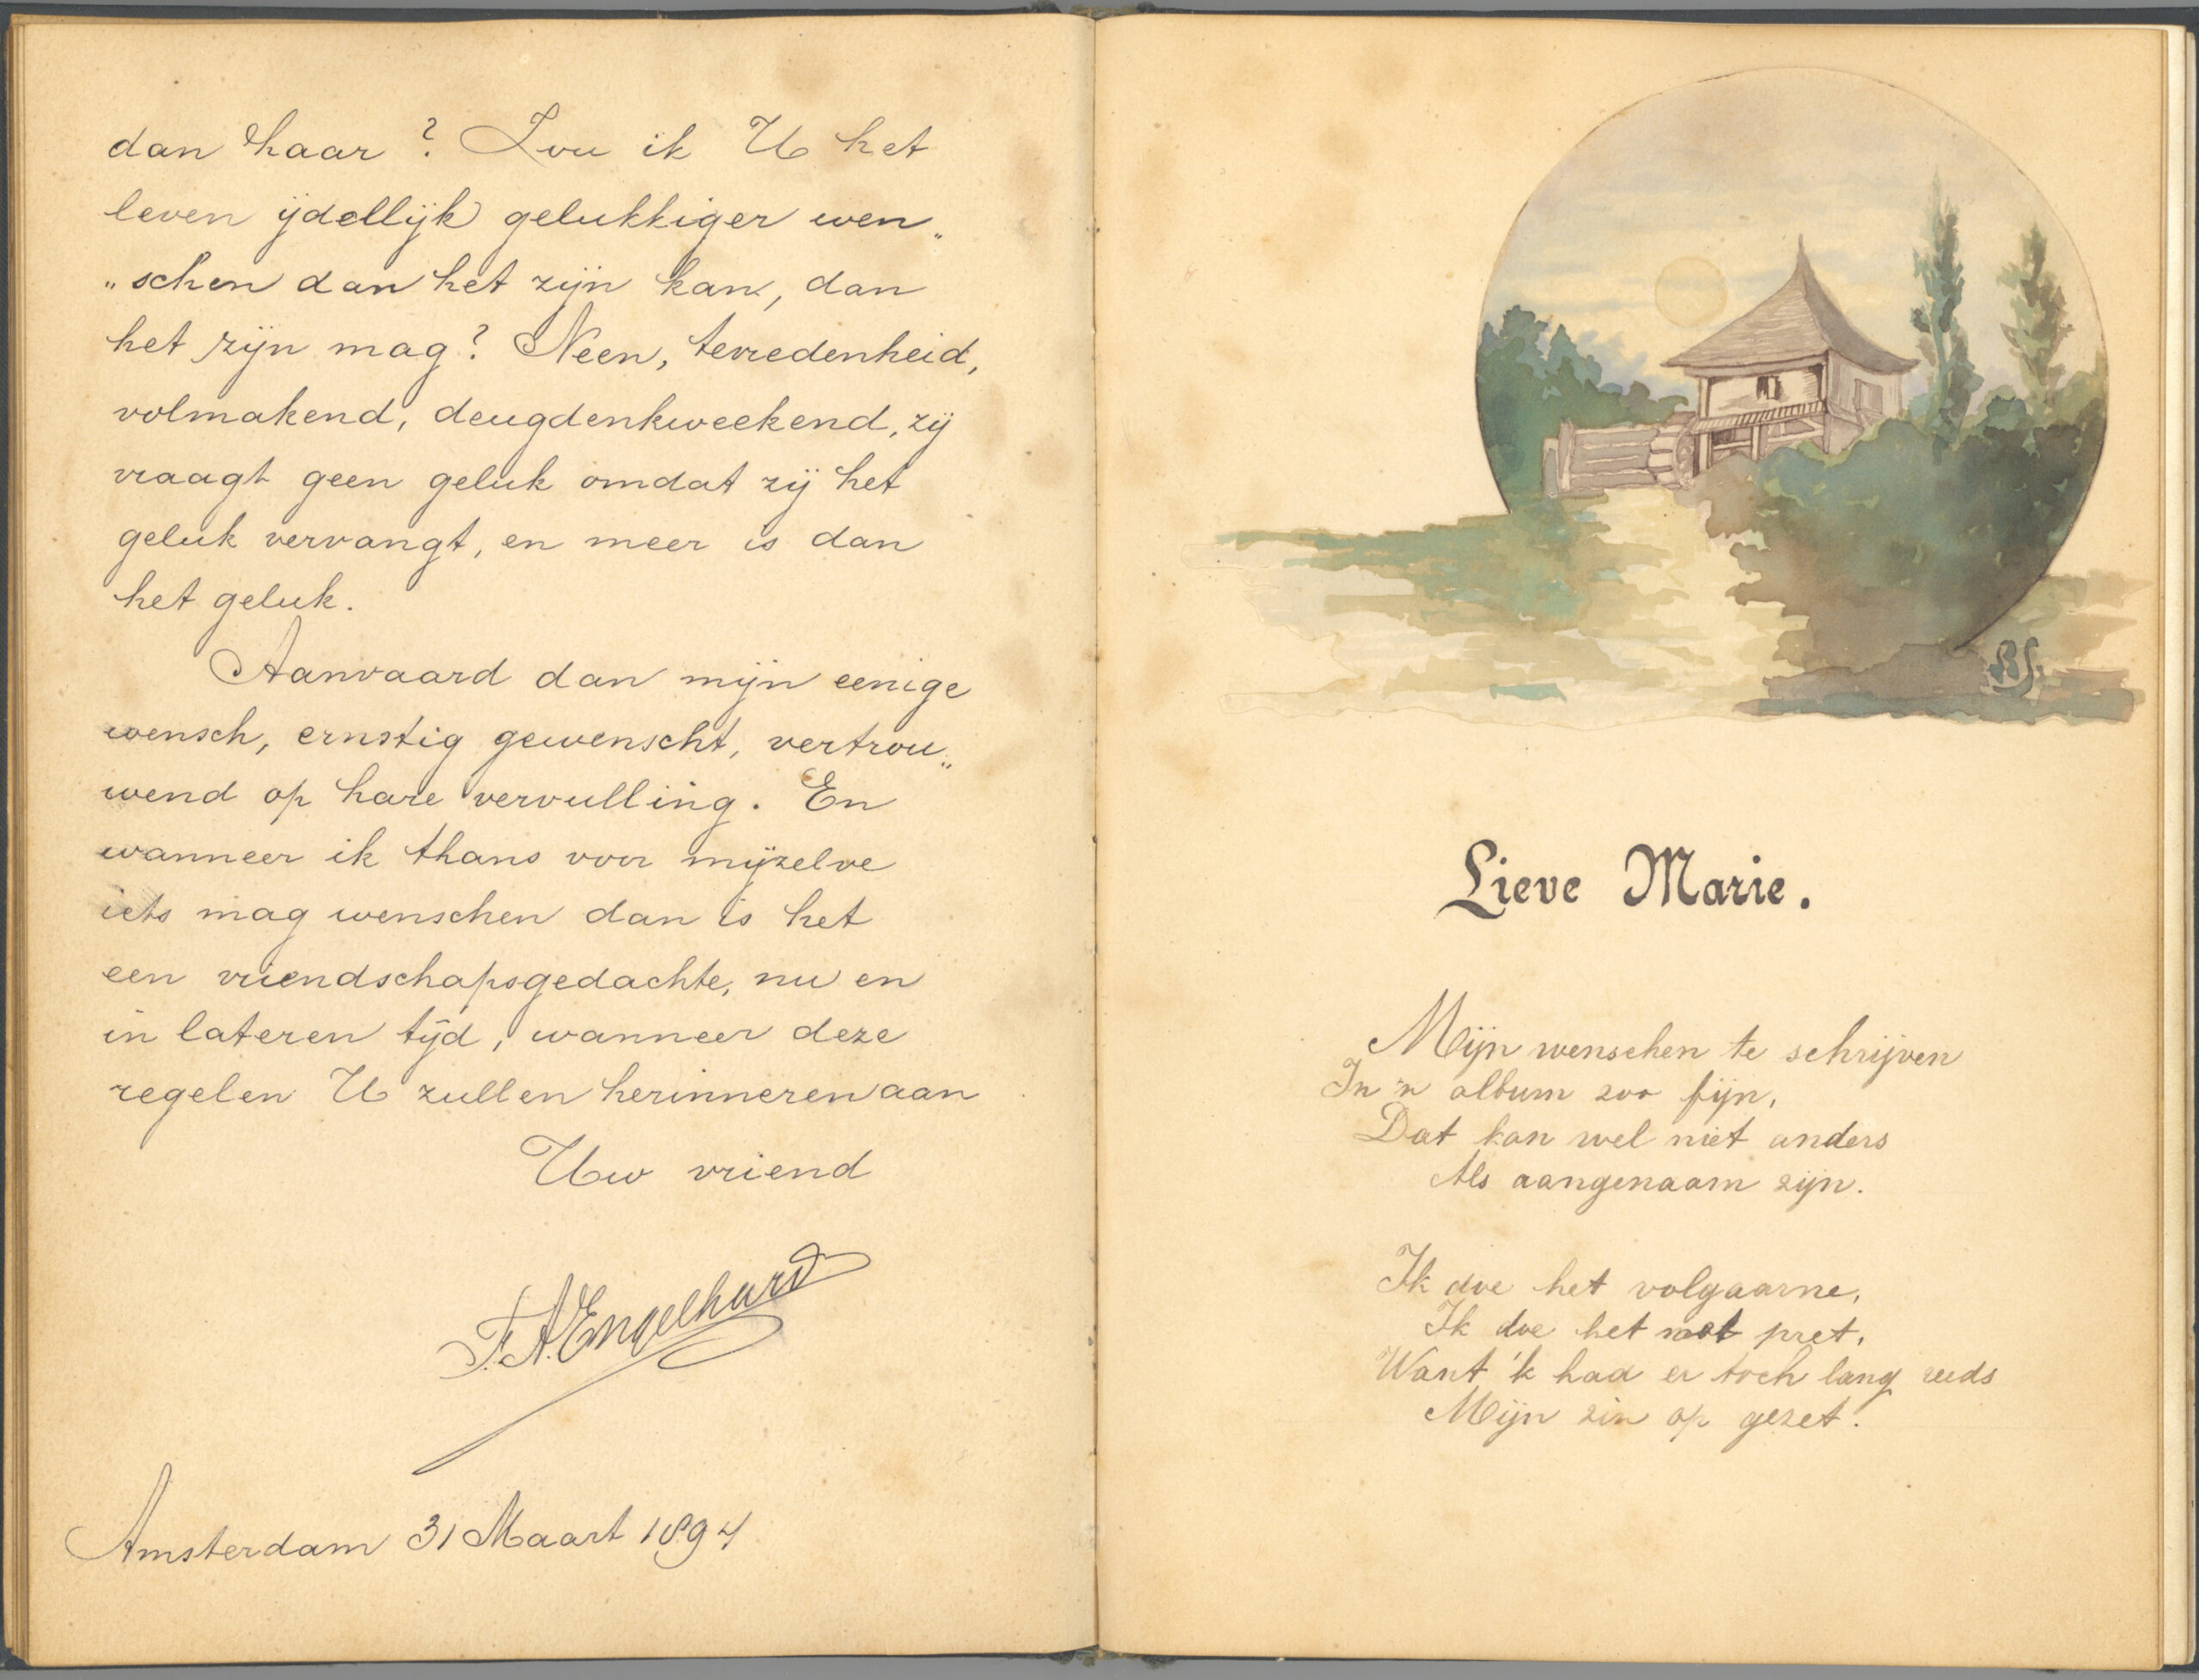 dan haar? Zou ik U het
leven ijdellijk gelukkiger wen„
„schen dan het zijn kan, dan
het zijn mag? Neen, tevredenheid,
volmakend, deugdenkweekend, zij
vraagt geen geluk omdat zij het
geluk vervangt, en meer is dan
het geluk.
Aanvaard dan mijn eenige
wensch, ernstig gewenscht, vertrou„
wend op hare vervulling. En
wanneer ik thans voor mijzelve
iets mag wenschen dan is het
een vriendschapsgedachte, nu en
in lateren tijd, wanneer deze
regelen U zullen herinneren aan
Uw vriend
F.A. Engelhard
Amsterdam 31 Maart 1894
BS.
Lieve Marie.
Mijn wenschen te schrijven
In 'n album zoo fijn,
Dat kan wel niet anders
Als aangenaam zijn.
Ik doe het volgaarne,
Ik doe het met pret,
Want 'k had er toch lang reeds
Mijn zin op gezet!